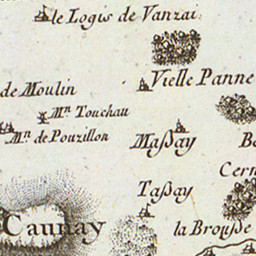 le Logis de Vanzai
Vielle Panne
de Moulin
Mⁿ Touchau
Mⁿ de Pouzillon
Maßay
Be
Cern
Taßay
Caunay
la Brouße